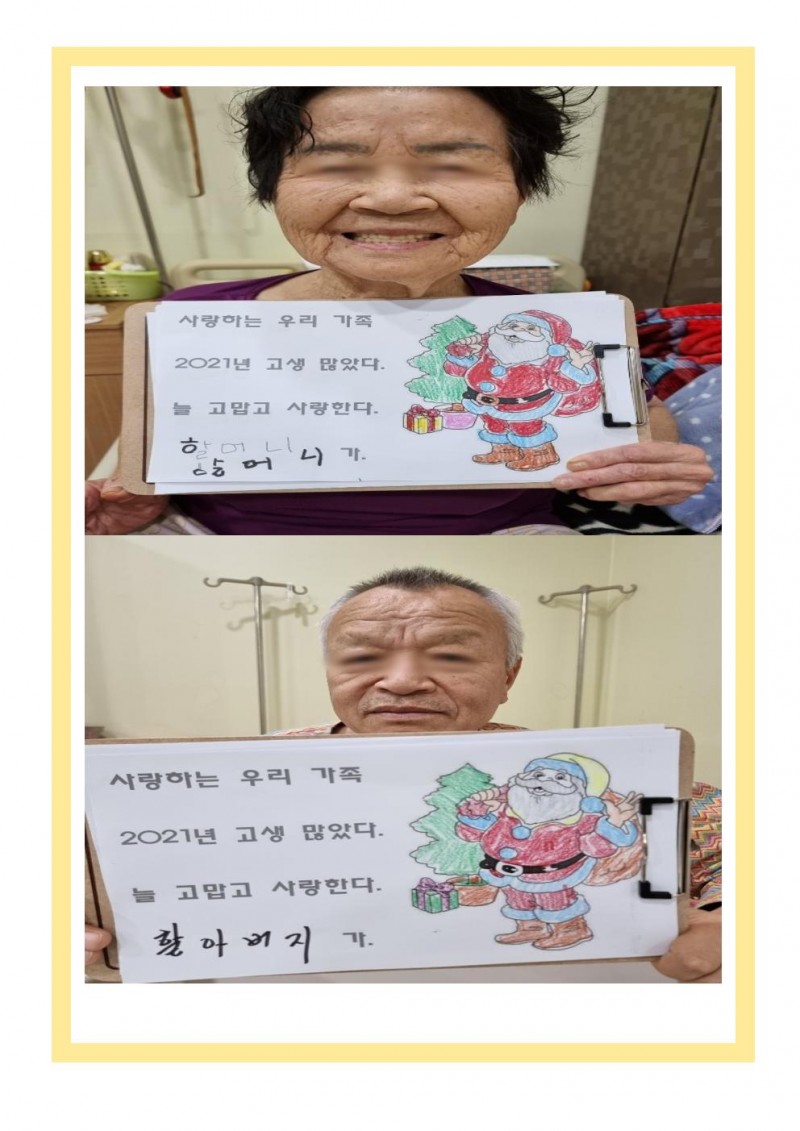 사랑하는 우리 가족
2021년 고생 많았다.
늘 고맙고 사랑한다.
할머니 가.
사랑하는 우리 가족
2021년 고생 많았다.
늘 고맙고 사랑한다.
할아버지 가.